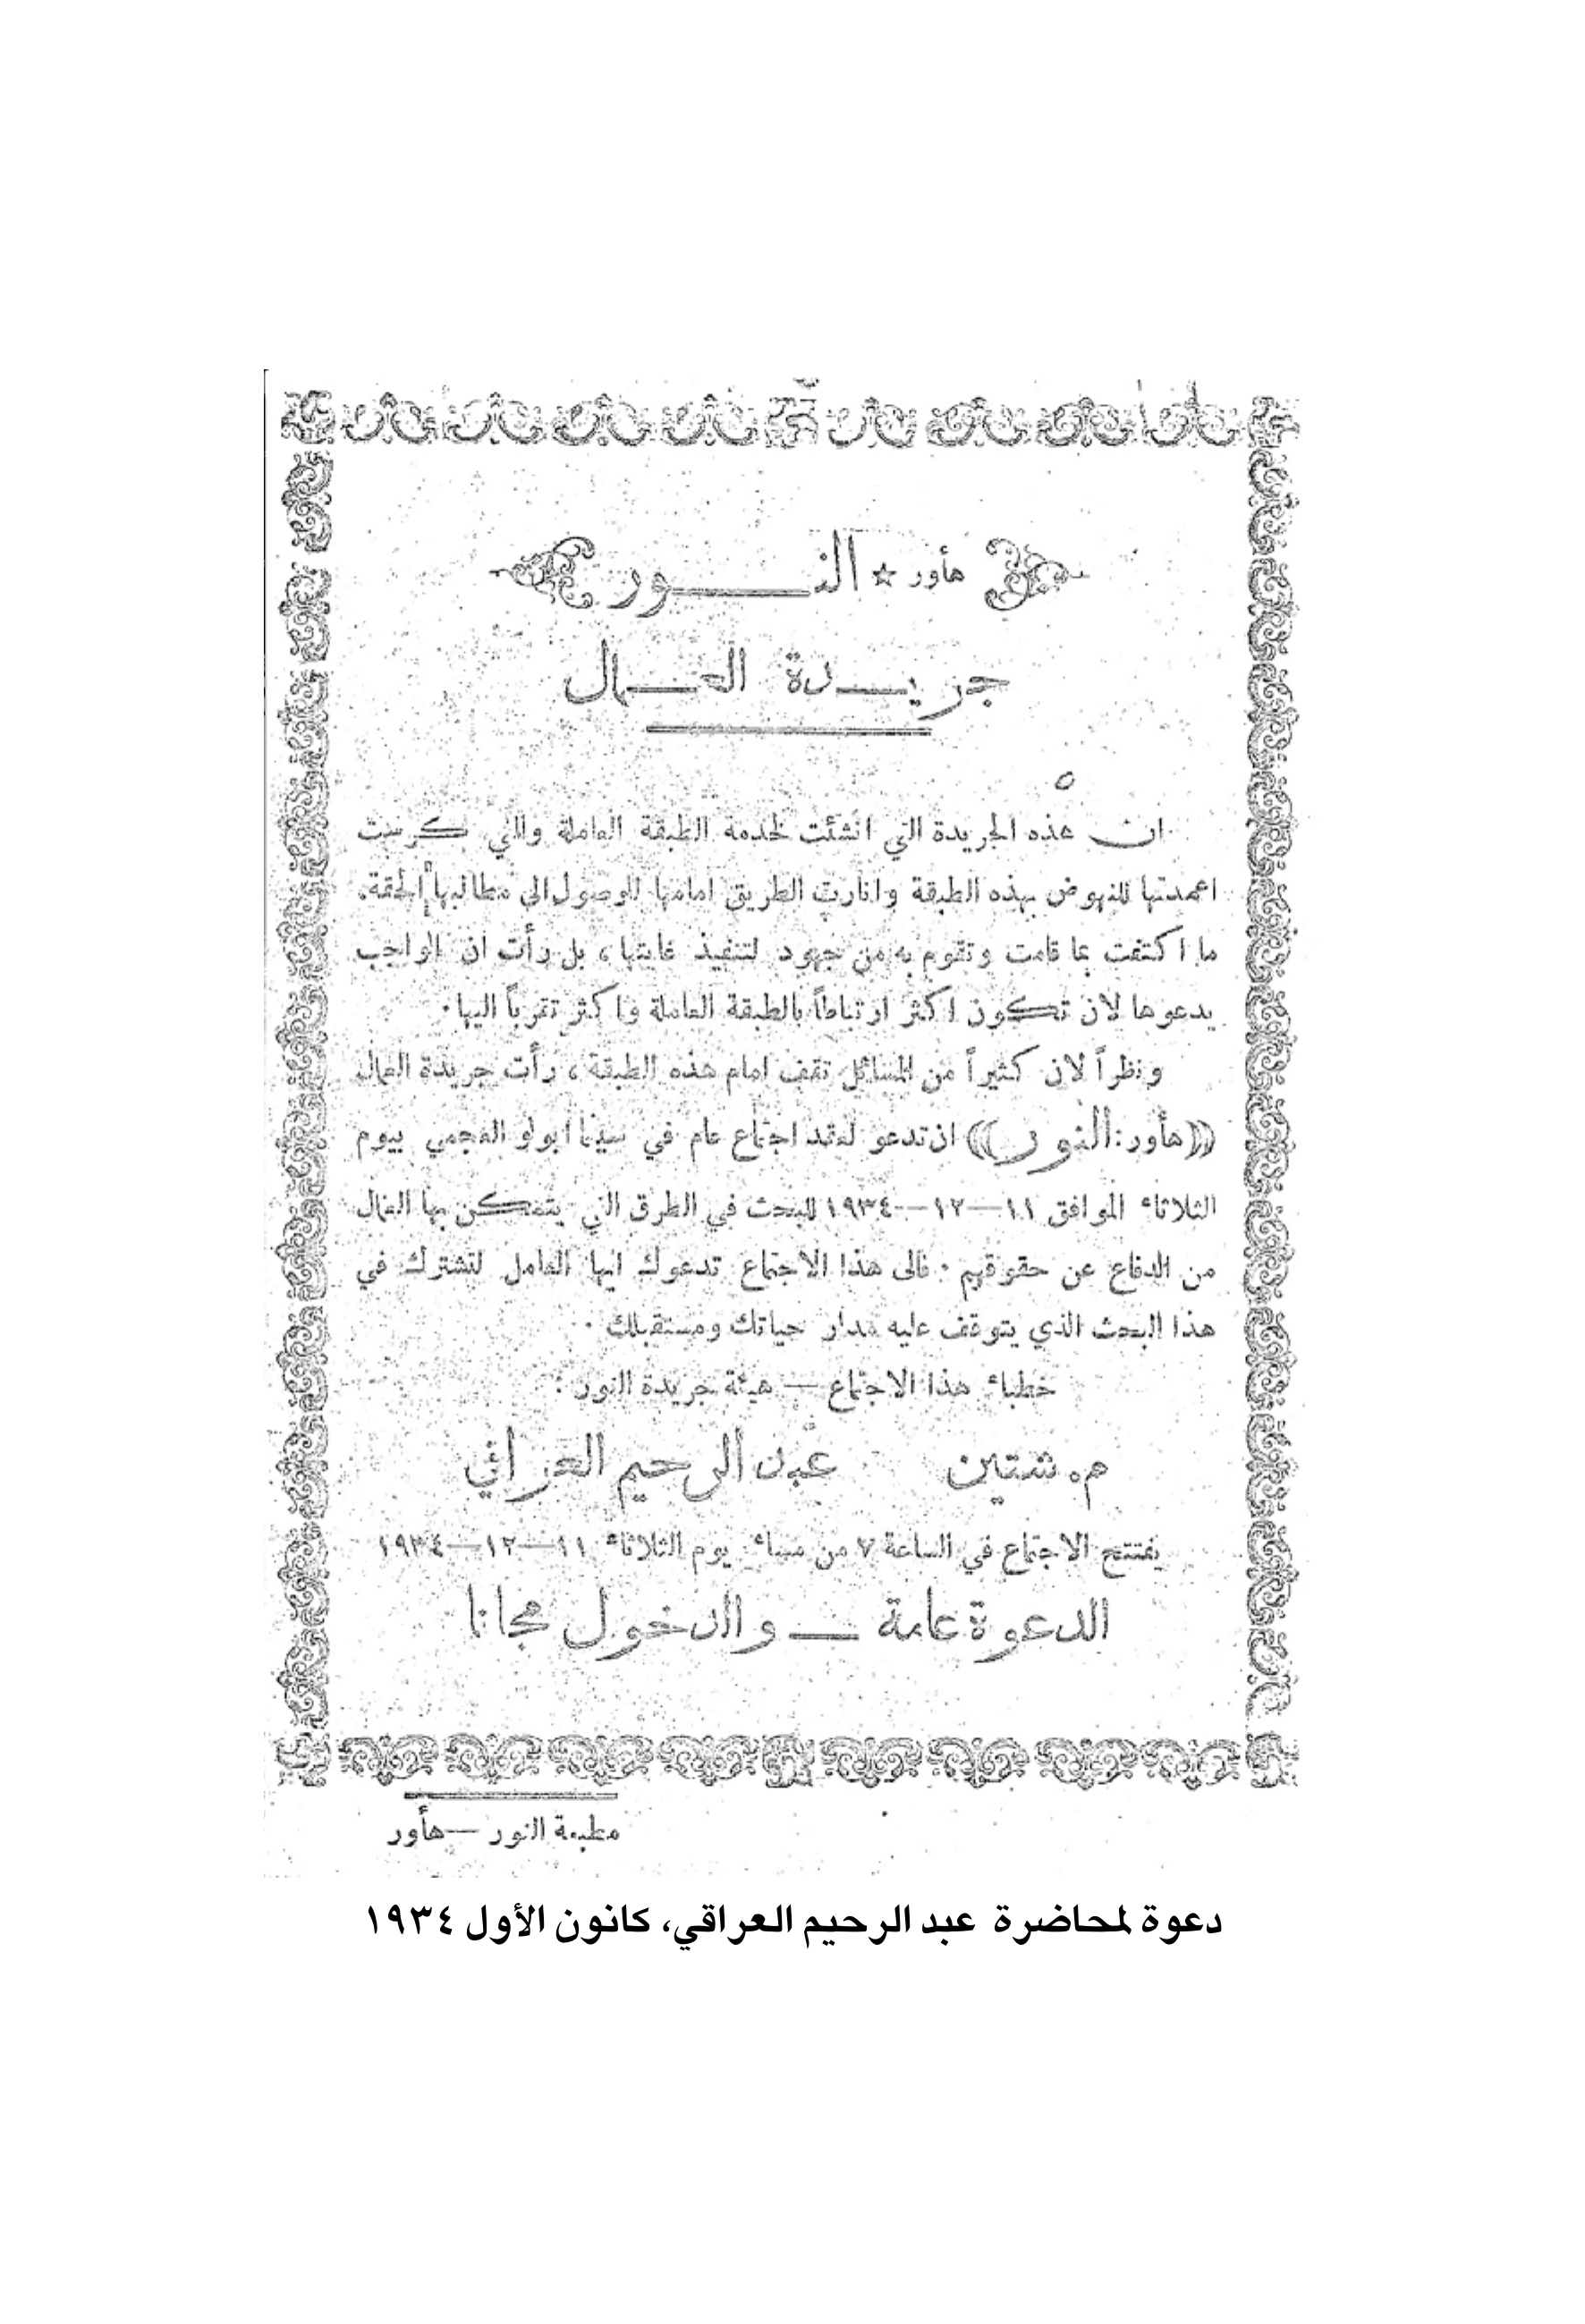 هأور ☆ النـــور
جريـــدة العـــمال
ان هذه الجريدة التي انشئت لخدمة الطبقة العاملة والتي كرست
اعمدتها للنهوض بهذه الطبقة وانارت الطريق امامها للوصول الى مطالبها الحقة،
ما اكتفت بما قامت وتقوم به من جهود لتنفيذ غايتها، بل رأت ان الواجب
يدعوها لان تكون اكثر ارتباطاً بالطبقة العاملة واكثر تقرباً اليها.
ونظراً لان كثيراً من المسائل تقف امام هذه الطبقة، رأت جريدة العمال
((هأور: النور)) ان تدعو لعقد اجتماع عام في سينما ابولو العجمي بيوم
الثلاثاء الموافق ١١—١٢—١٩٣٤ للبحث في الطرق التي يتمكن بها العمال
من الدفاع عن حقوقهم. فالى هذا الاجتماع تدعوك ايها العامل لتشترك في
هذا البحث الذي يتوقف عليه مدار حياتك ومستقبلك.
خطباء هذا الاجتماع — هيئة جريدة النور:
م. شتين عبد الرحيم العراقي
يفتتح الاجتماع في الساعة ٧ من مساء يوم الثلاثاء ١١—١٢—١٩٣٤
الدعوة عامة — والدخول مجانا
مطبعة النور — هأور
دعوة لمحاضرة عبد الرحيم العراقي، كانون الأول ١٩٣٤